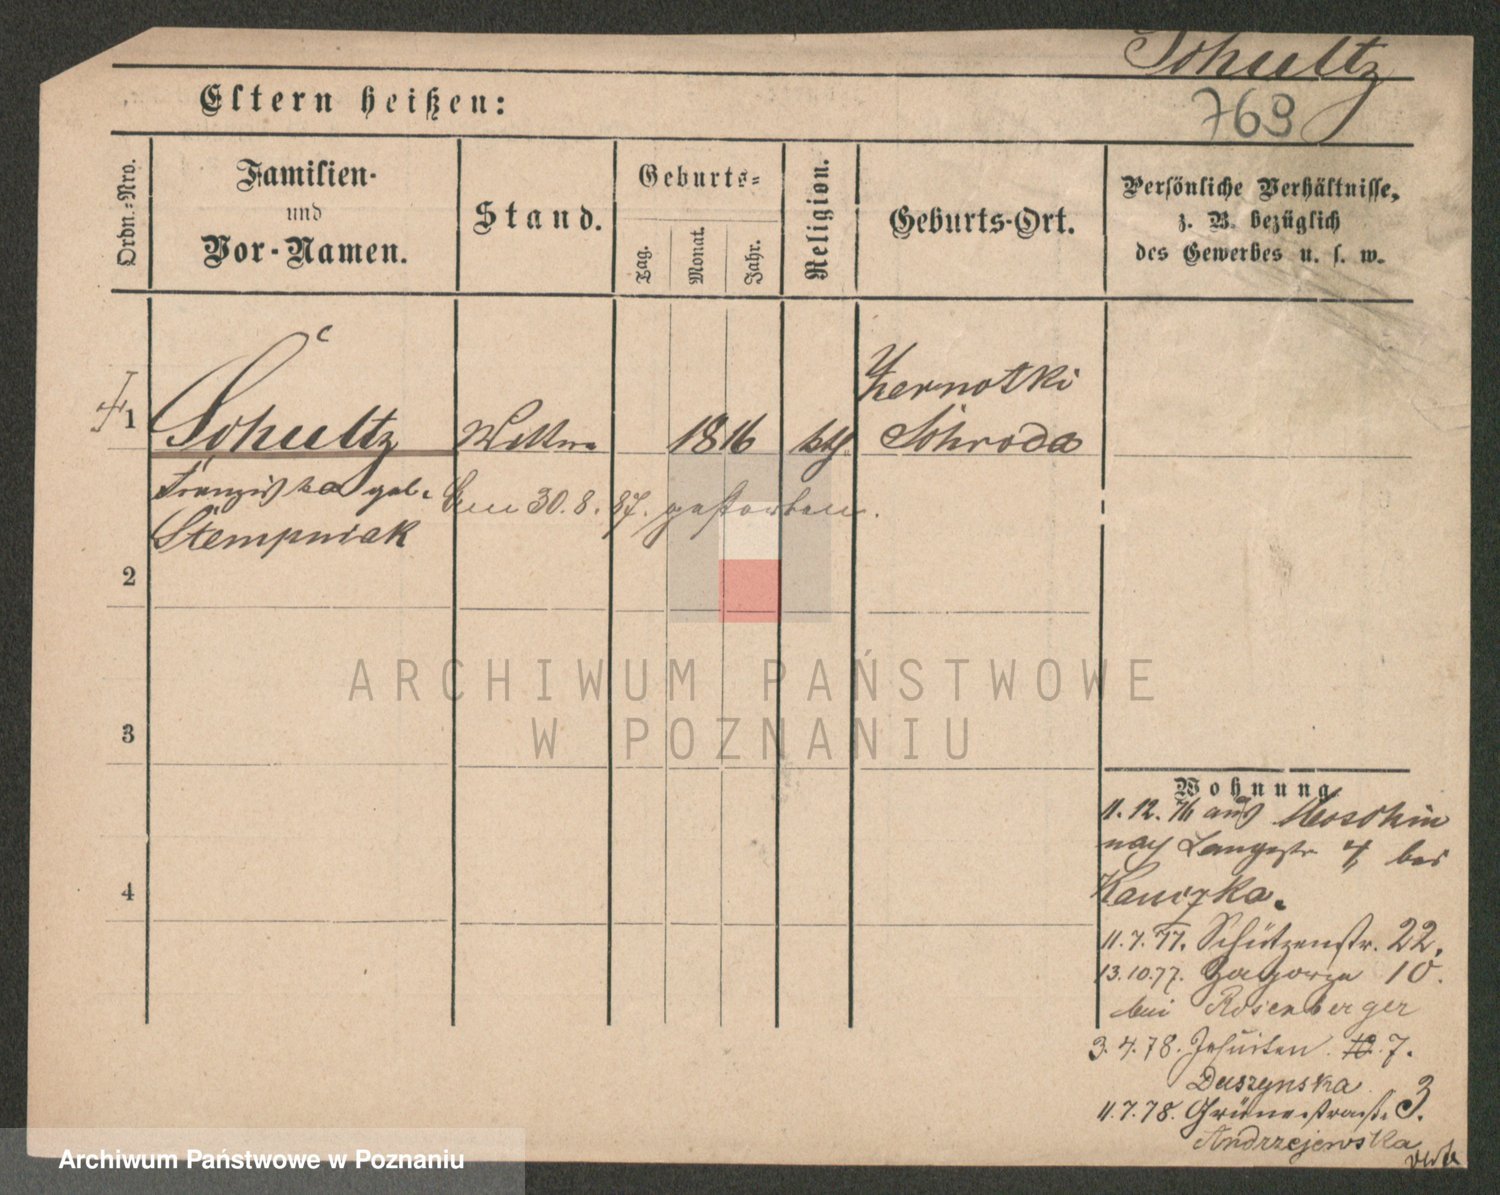 Schultz
769
Eltern heißen:
Ordn.-Nro.
Familien-
und
Vor-Namen.
Stand.
Geburts-
Tag.
Monat.
Jahr.
Religion.
Geburts-Ort.
Persönliche Verhältnisse,
z. B. bezüglich
des Gewerbes u. s. w.
1
Schultz
Wittwe
1816
kth
Zernotki
Schroda
Franziska geb.
Stempniak
Den 30. 8. 87. gestorben.
2
3
4
ARCHIWUM PAŃSTWOWE
W POZNANIU
Wohnung
11. 12. 76 aus Moschin
nach Langestr 4 bei
11. 7. 77. Schützenstr. 22.
13. 10. 77. Zagorze 10.
bei Rosenberger
3. 4. 78. Jesuiten 10. 7.
Duszynska
11. 7. 78. Grünestraße 3.
Andrzejewska
Archiwum Państwowe w Poznaniu